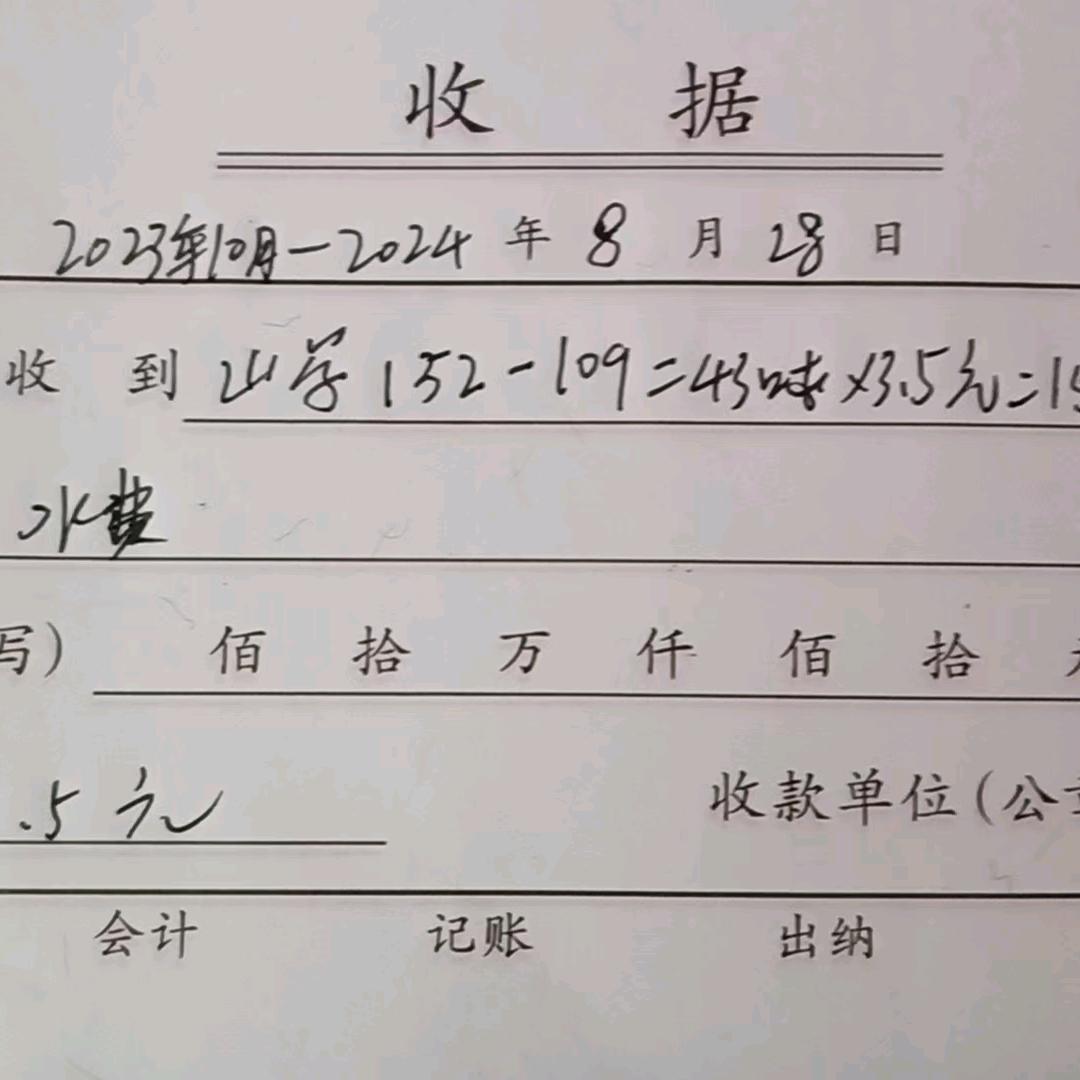 收 据
2023年10月-2024 年 8 月 28 日
收 到 152-109=43吨×3.5元=15
水费
写) 佰 拾 万 仟 佰 拾
.5元 收款单位(公章
会计 记账 出纳